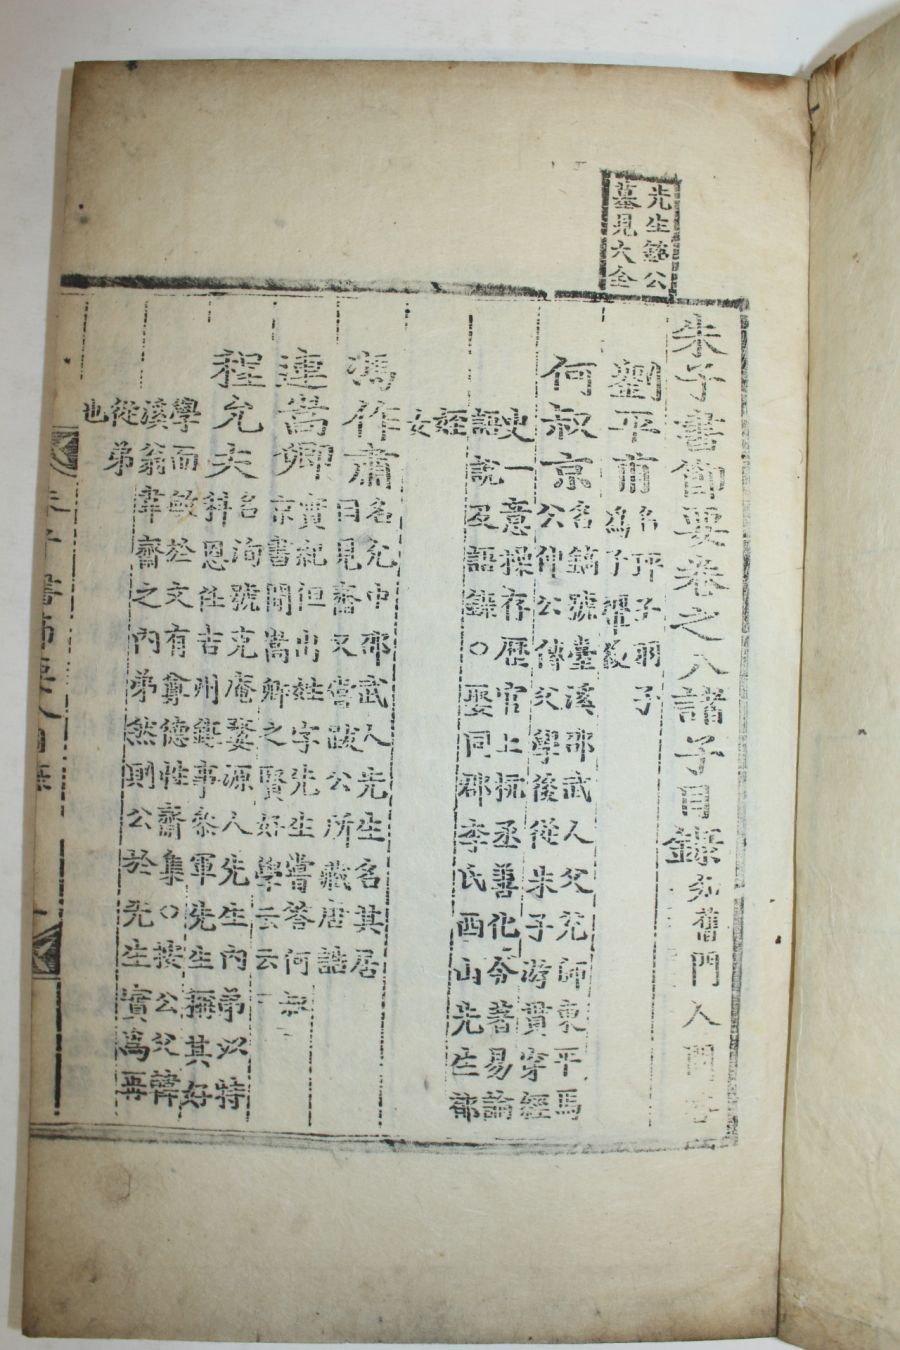 先生銘公
墓見大全
朱子書節要卷之八諸子目錄知舊門人問答
劉平甫名玶子羽子
爲子翬後
何叔京名鎬號臺溪邵武人父兌師東平馬
公伸公傳父學後從朱子游貫穿經
史一意操存歷官上抗丞善化令著易論
語說及語錄○娶同郡李氏西山先生郁
姪
女
馮作肅名允中邵武人先生名其居
曰見齋又嘗跋公所藏唐誥
連嵩卿實紀但出姓字先生嘗答何叔
京書聞嵩卿之賢好學云云
程允夫名洵號克庵婺源人先生內弟以特
科恩任吉州錄事參軍先生稱其好
學而敏於文有尊德性齋集○按公父鼎
溪翁韋齋之內弟然則公於先生實爲再
從弟
也
朱子書節要八目錄